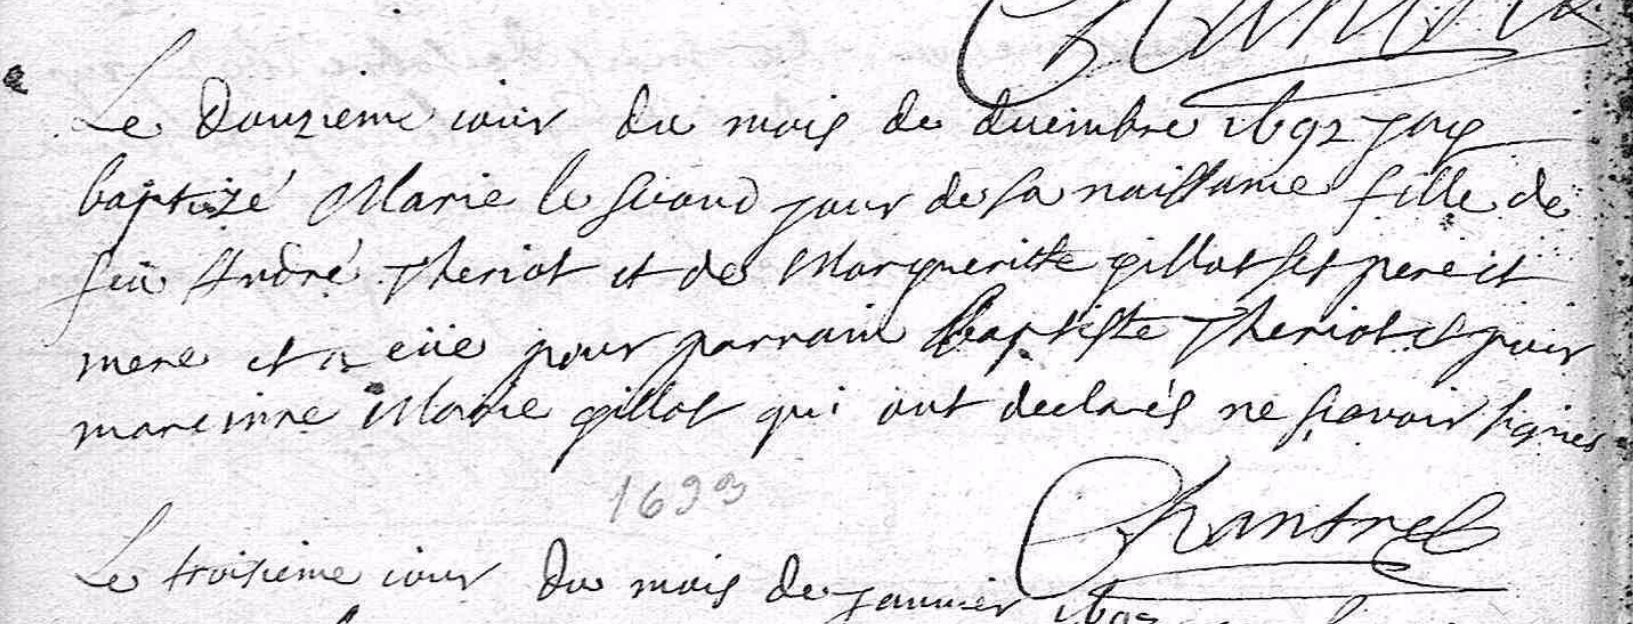 Chantrel
Le Douzieme iour du mois de decembre 1692 jay
baptizé Marie le second jour de sa naissance fille de
feu André Theriot et de Margueritte gillot set pere et
mere et a eüe pour parrain Baptiste Theriot et pour
mareinne Marie gillot qui ont declarés ne scavoir signer
Chantrel
1693
Le troisieme iour du mois de janvier 1693